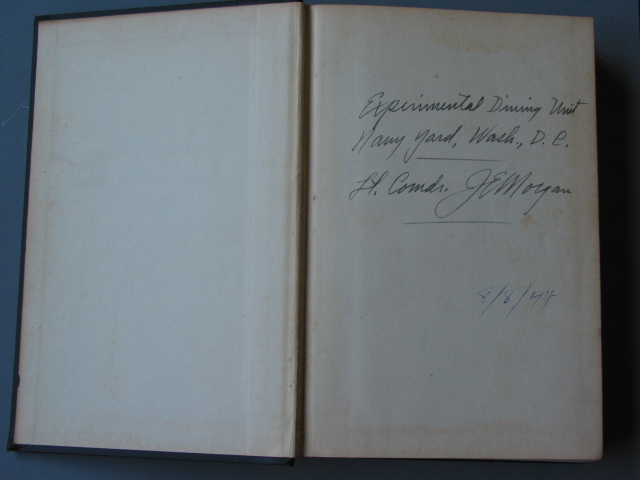 Experimental Diving Unit
Navy Yard, Wash., D.C.
Lt. Comdr. JEMorgan
8/8/44